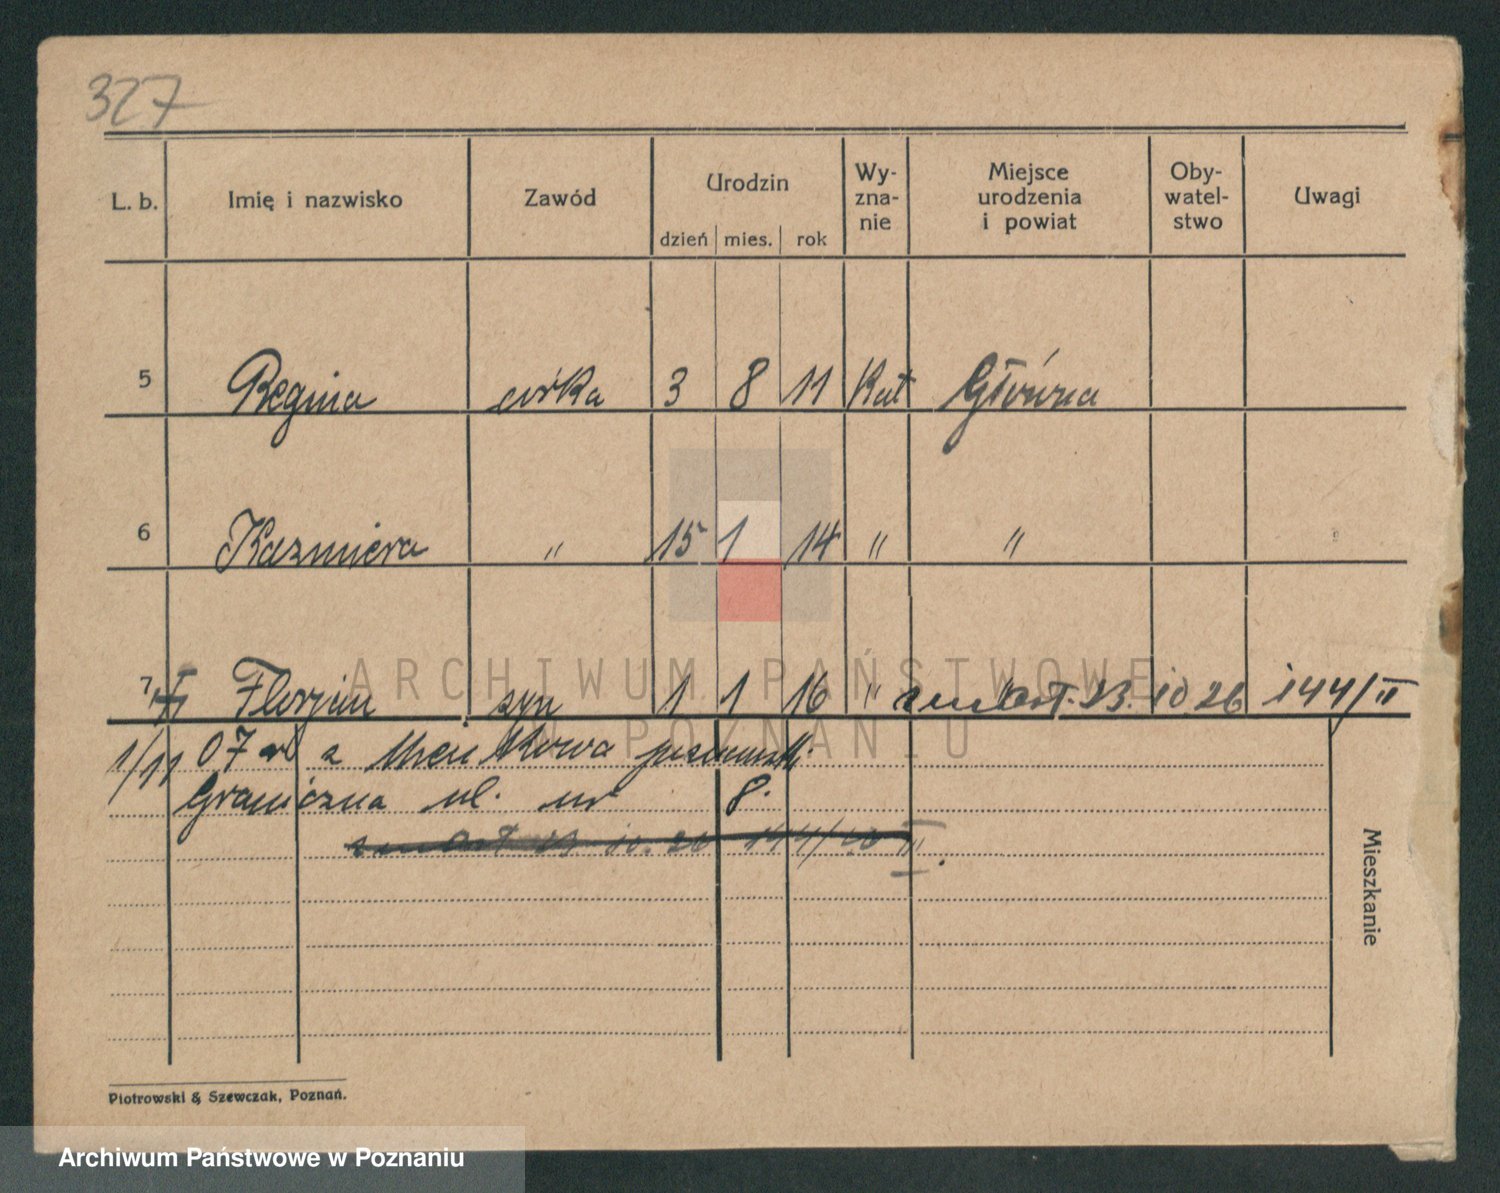 327
L. b. Imię i nazwisko Zawód Urodzin dzień mies. rok Wy-zna-nie Miejsce urodzenia i powiat Oby-watel-stwo Uwagi
5 Regina córka 3 8 11 Kat Główna
6 Kazmiera " 15 1 14 " "
7 Florjan syn 1 1 16 " " zmarł. 23. 10 26 144/II
1/11 07 z
Graniczna ul. nr 8.
23. 10. 26 144/
Mieszkanie
Piotrowski & Szewczak, Poznań.
ARCHIWUM PAŃSTWOWE
W POZNANIU
Archiwum Państwowe w Poznaniu